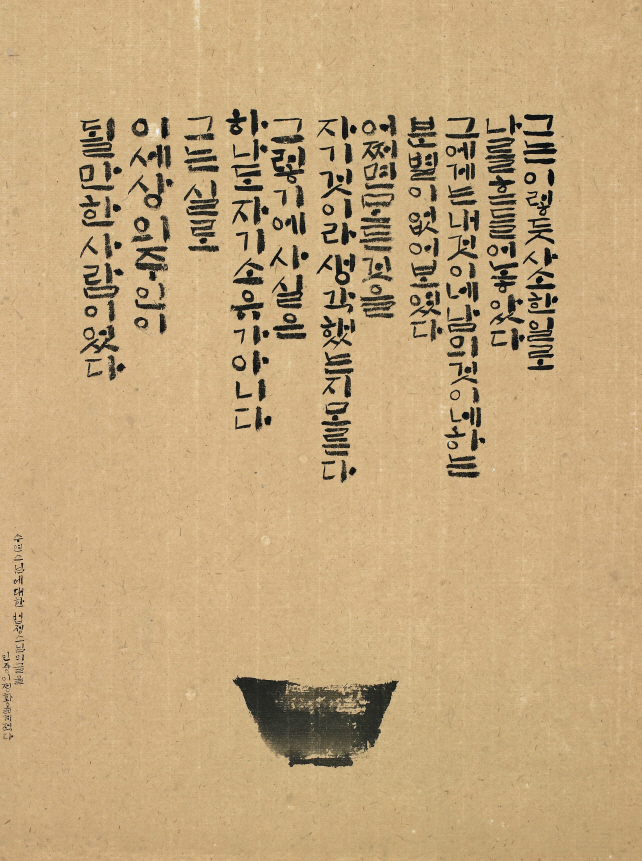 그는 이렇듯 사소한 일로
나를 흔들어 놓았다
그에게는 내 것이네 남의 것이네 하는
분별이 없어 보였다
어쩌면 모든 것을
자기 것이라 생각했는지 모른다
그렇기에 사실은
하나도 자기 소유가 아니다
그는 실로
이 세상의 주인이
될 만한 사람이었다
수연스님에 대한 법정스님의 글을